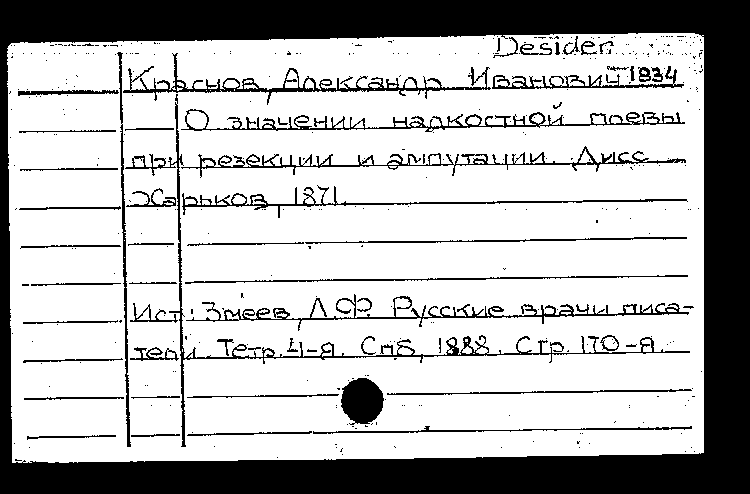 Desider.
Краснов, Александр Иванович 1934
О значении надкостной плевы
при резекции и ампутации. Дисс.
Харьков, 1871.
Ист.: Змеев, Л.Ф. Русские врачи писа-
тели. Тетр. 4-я. Спб, 1888. Стр. 170-я.